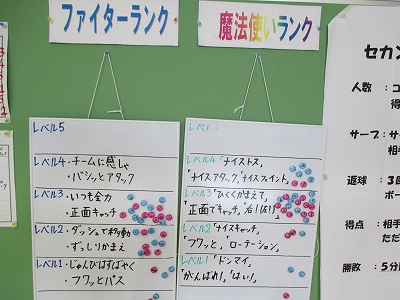 ファイターランク
レベル5
レベル4・チームに感しゃ
・バシッとアタック
レベル3・いつも全力
・正面キャッチ
レベル2・ダッシュで移動
・ずっしりかまえ
レベル1・じゅんびはすばやく
・フワッとパス
魔法使いランク
レベル5
レベル4「ナイストス」
「ナイスアタック」「ナイスフェイント」
レベル3「ひくくかまえて」
「正面でキャッチ」「右!(左!)」
レベル2「ナイスキャッチ」
「フワッと」「ローテーション」
レベル1「ドンマイ」
「がんばれ!」「はい!」
セカン
人数 :コ
得
サーブ :サ
サ
返球 :3
ボー
得点 :相手
ただ
勝敗 :5分